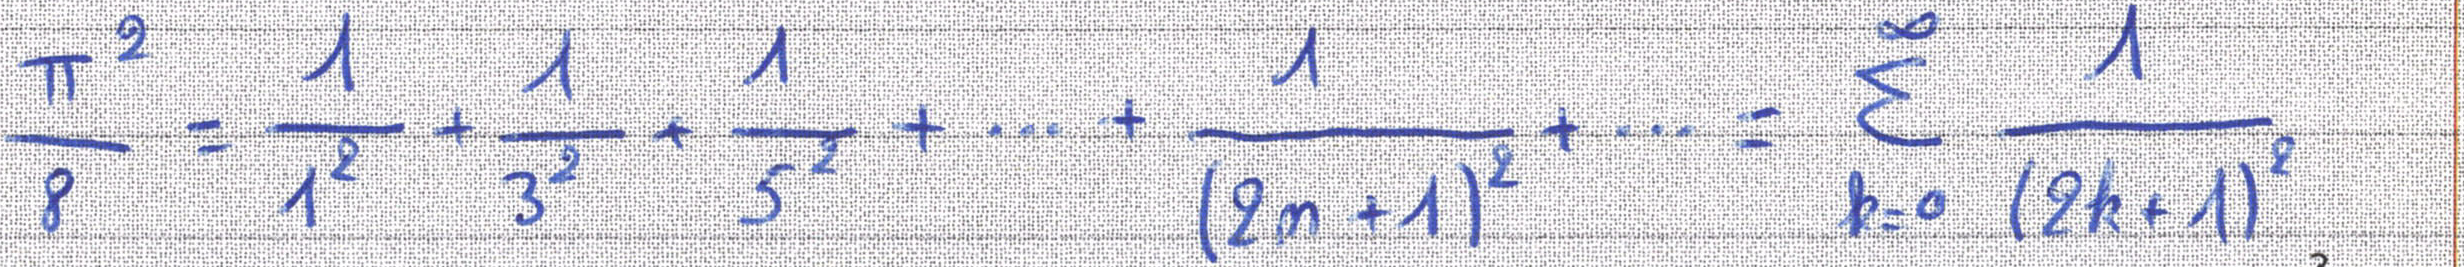 π²/8 = 1/1² + 1/3² + 1/5² + ... + 1/(2n+1)² + ... = ∑_{k=0}^{∞} 1/(2k+1)²